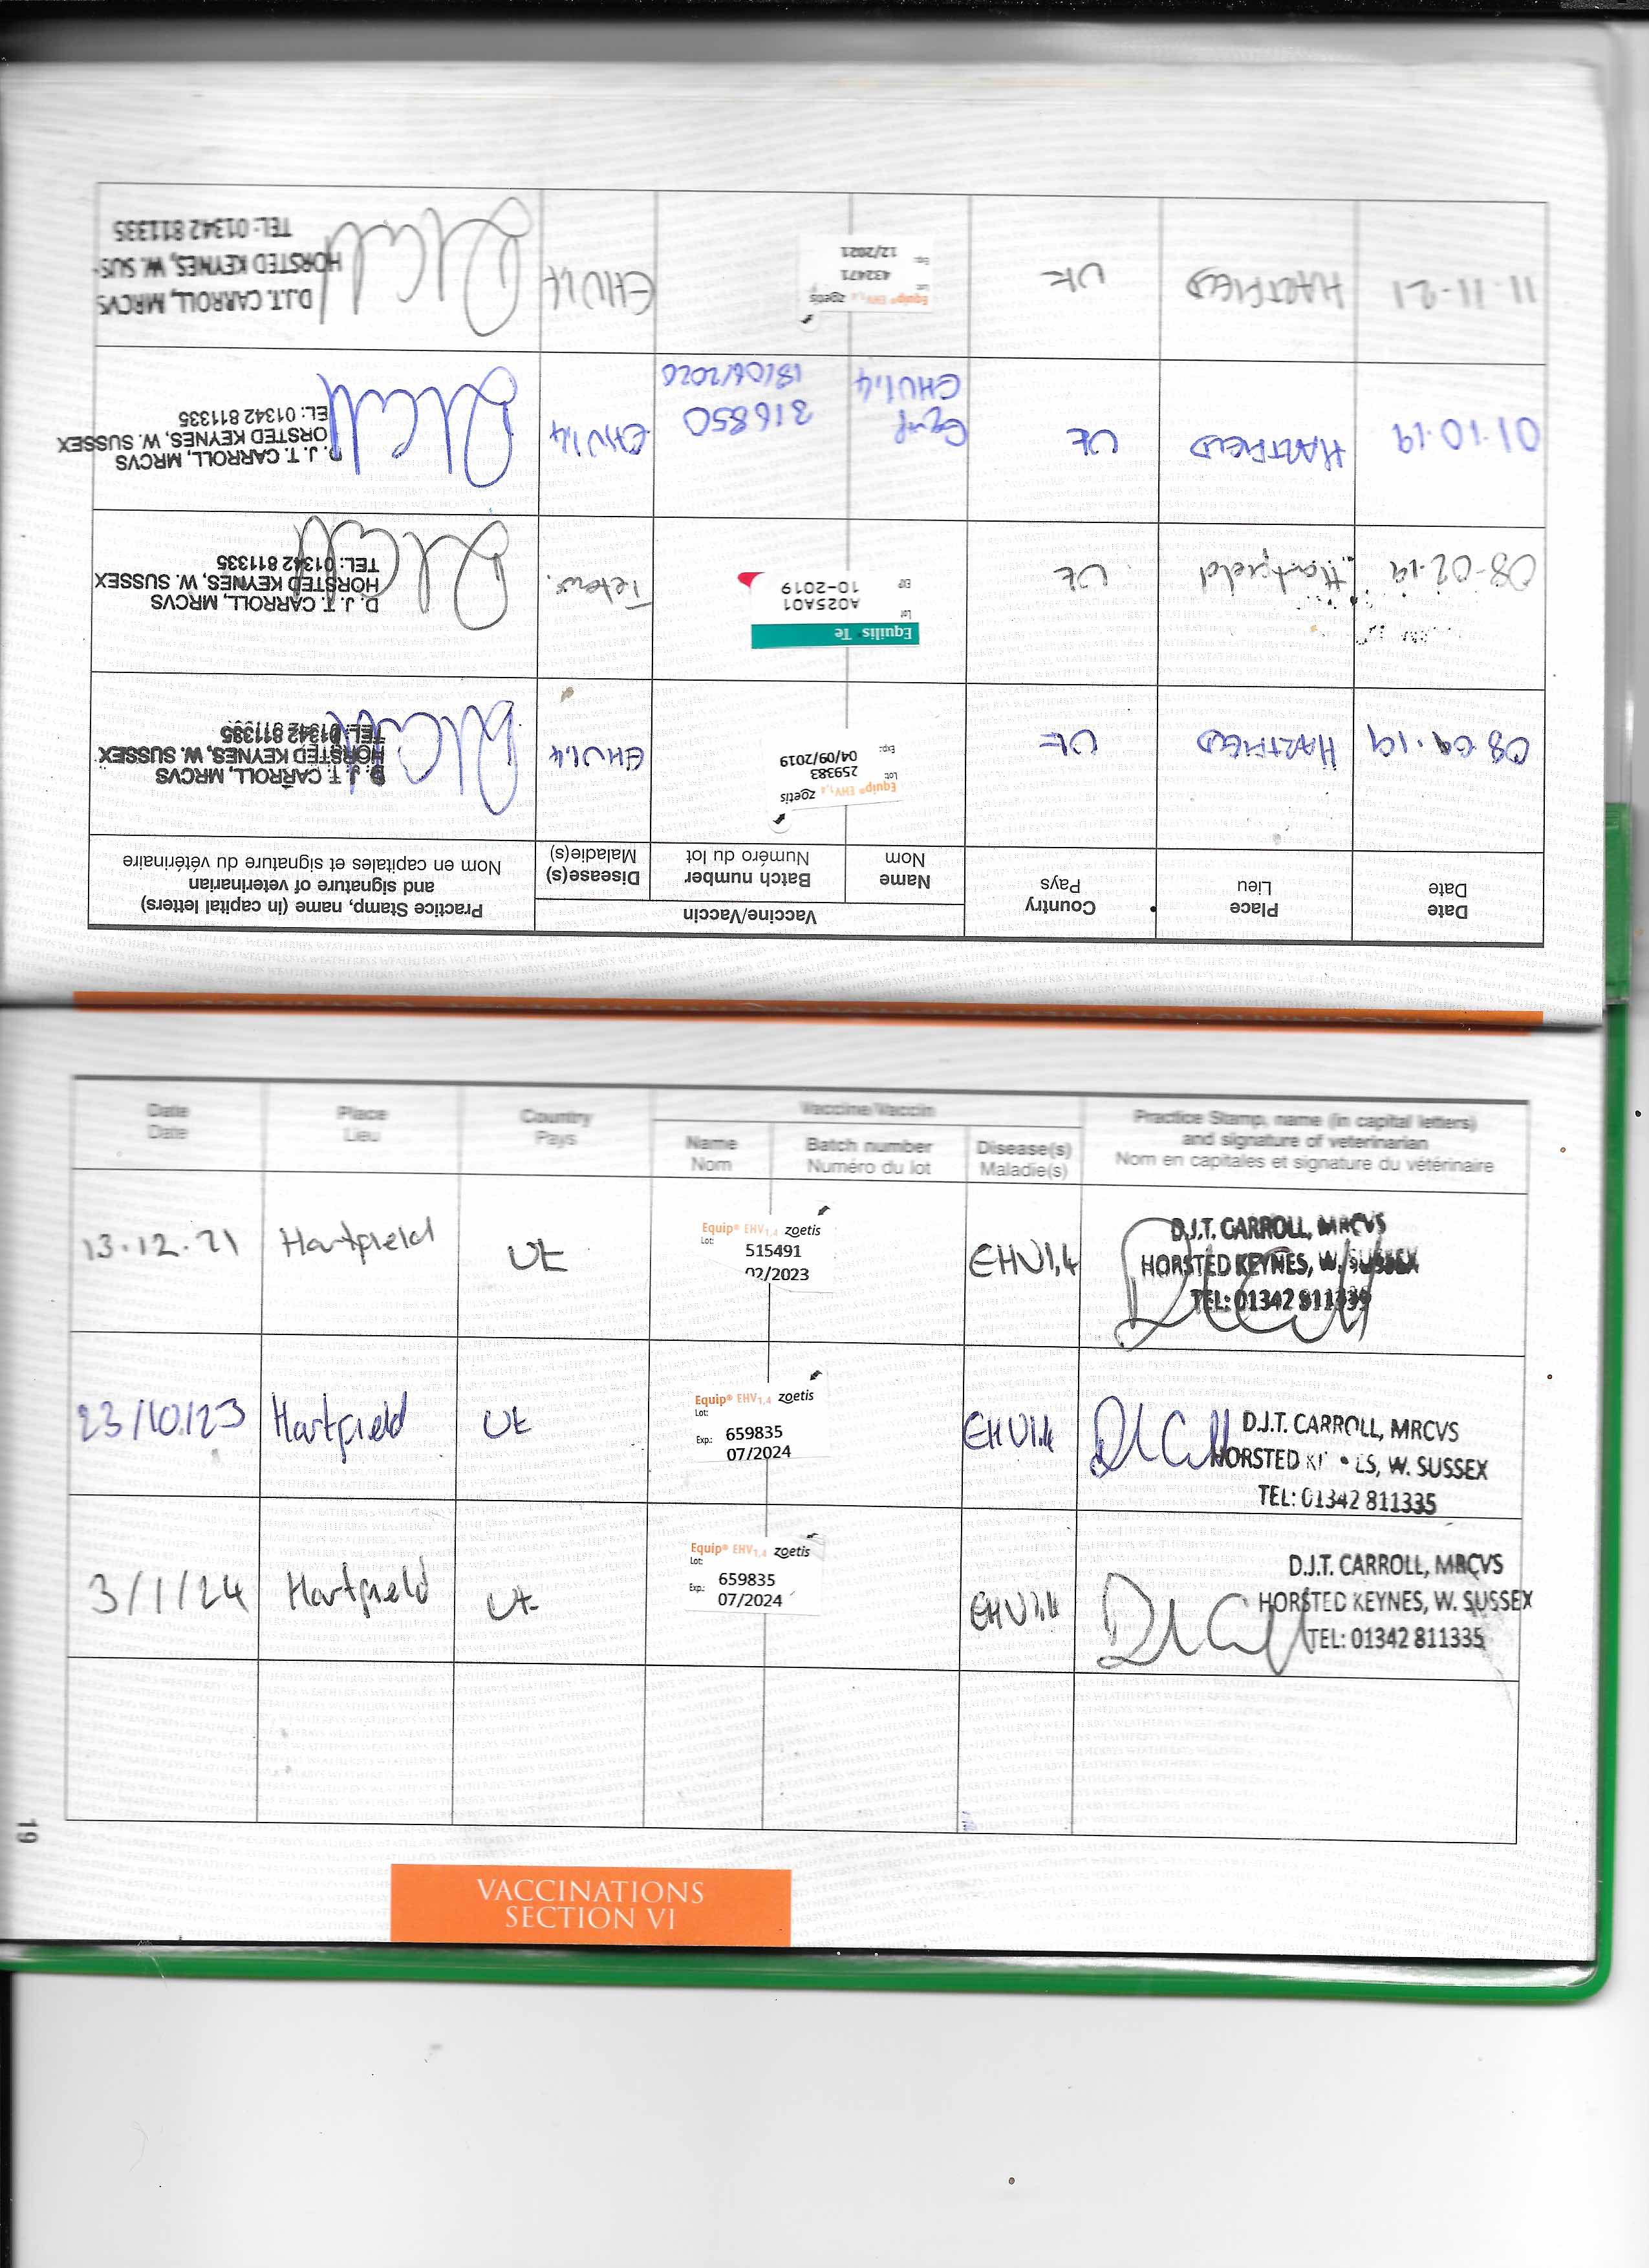 Date Place Country Vaccine/Vaccin Practice Stamp, name (in capital letters)
and signature of veterinarian
Date Lieu Pays Name Batch number Disease(s) Nom en capitales et signature du vétérinaire
Nom Numéro du lot Maladie(s)
HARTFIELD UK Equip® EHV1,4 zoetis EHV1,4 D. J. T. CARROLL, MRCVS
Lot: 259383 HORSTED KEYNES, W. SUSSEX
Exp: 04/09/2019 TEL: 01342 811335
08-02-19 Hartfield UK Equilis® Te Tetanus D. J. T. CARROLL, MRCVS
Lot A025A01 HORSTED KEYNES, W. SUSSEX
EXP 10-2019 TEL: 01342 811335
01.10.19 HARTFIELD UK Equip 316850 EHV1,4 D. J. T. CARROLL, MRCVS
EHV1,4 18/06/2020 ORSTED KEYNES, W. SUSSEX
EL: 01342 811335
11.11.21 HARTFIELD UK Equip® EHV1,4 zoetis EHV1,4 D.J.T. CARROLL, MRCVS
Lot: 432471 HORSTED KEYNES, W. SUS
Exp: 12/2021 TEL: 01342 811335
Date Place Country Vaccine/Vaccin Practice Stamp, name (in capital letters)
and signature of veterinarian
Date Lieu Pays Name Batch number Disease(s) Nom en capitales et signature du vétérinaire
Nom Numéro du lot Maladie(s)
13.12.21 Hartfield UK Equip® EHV1,4 zoetis EHV1,4 D.J.T. CARROLL, MRCVS
Lot: 515491 HORSTED KEYNES, W. SUSSEX
02/2023 TEL: 01342 811335
23/10/23 Hartfield UK Equip® EHV1,4 zoetis EHV1.4 D.J.T. CARROLL, MRCVS
Lot: 659835 HORSTED KE LS, W. SUSSEX
Exp.: 07/2024 TEL: 01342 811335
3/1/24 Hartfield UK Equip® EHV1,4 zoetis EHV1,4 D.J.T. CARROLL, MRCVS
Lot: 659835 HORSTED KEYNES, W. SUSSEX
Exp.: 07/2024 TEL: 01342 811335
19
VACCINATIONS
SECTION VI